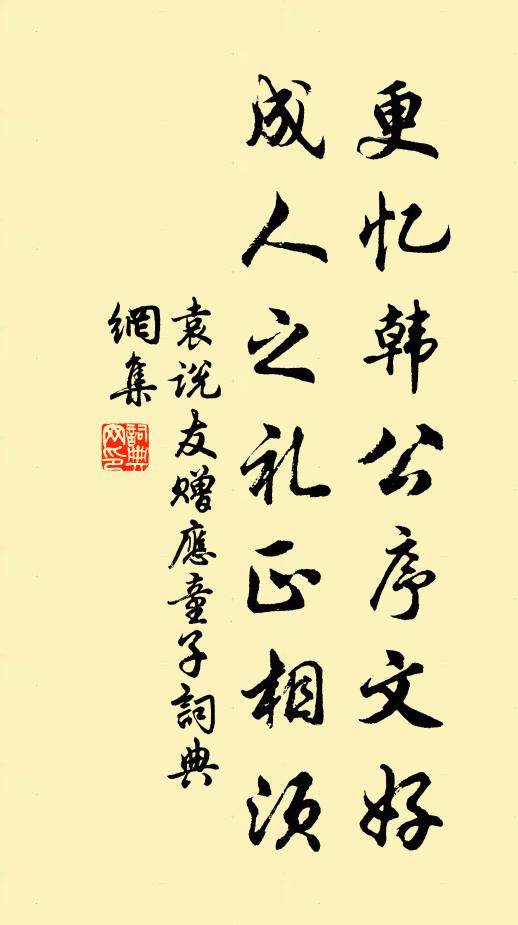 更忆韩公序文好
成人之礼正相须
袁说友赠應童子詞典
網集
詞典
网印